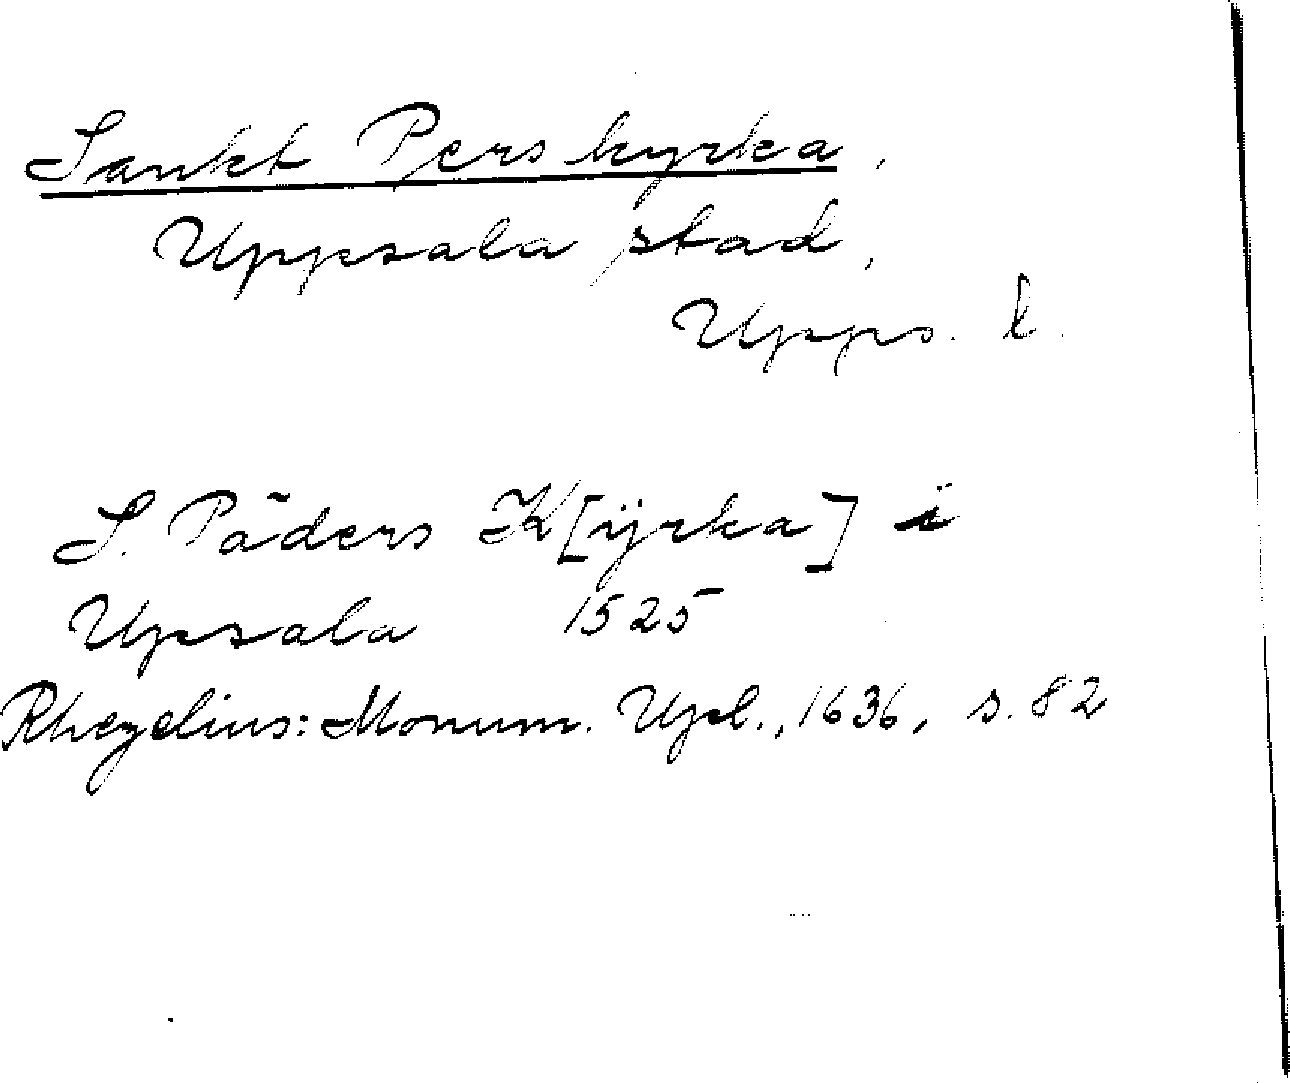 Sankt Pers kyrka,
Uppsala stad,
Upps. l.
S. Päders K[ÿrka] i
Upsala 1525
Rhezelius: Monum. Upl., 1636, s. 82